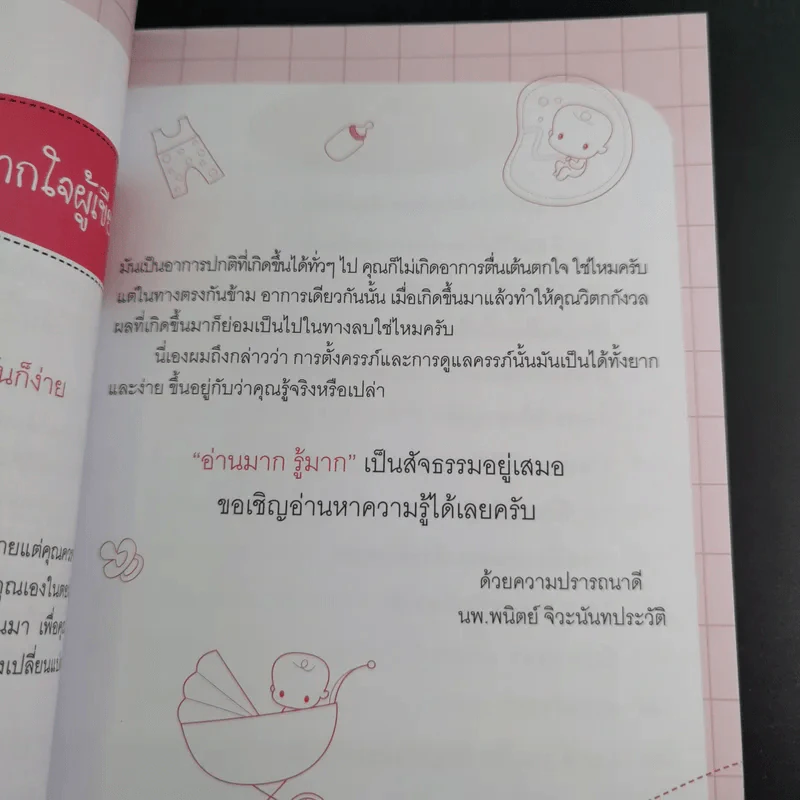 ากใจผู้เขีย
นก็ง่าย
ายแต่คุณควร
คุณเองในตอน
นมา เพื่อคุณ
งเปลี่ยนแป
มันเป็นอาการปกติที่เกิดขึ้นได้ทั่วๆ ไป คุณก็ไม่เกิดอาการตื่นเต้นตกใจ ใช่ไหมครับ
แต่ในทางตรงกันข้าม อาการเดียวกันนั้น เมื่อเกิดขึ้นมาแล้วทำให้คุณวิตกกังวล
ผลที่เกิดขึ้นมาก็ย่อมเป็นไปในทางลบใช่ไหมครับ
นี่เองผมถึงกล่าวว่า การตั้งครรภ์และการดูแลครรภ์นั้นมันเป็นได้ทั้งยาก
และง่าย ขึ้นอยู่กับว่าคุณรู้จริงหรือเปล่า
“อ่านมาก รู้มาก” เป็นสัจธรรมอยู่เสมอ
ขอเชิญอ่านหาความรู้ได้เลยครับ
ด้วยความปรารถนาดี
นพ.พนิตย์ จิวะนันทประวัติ